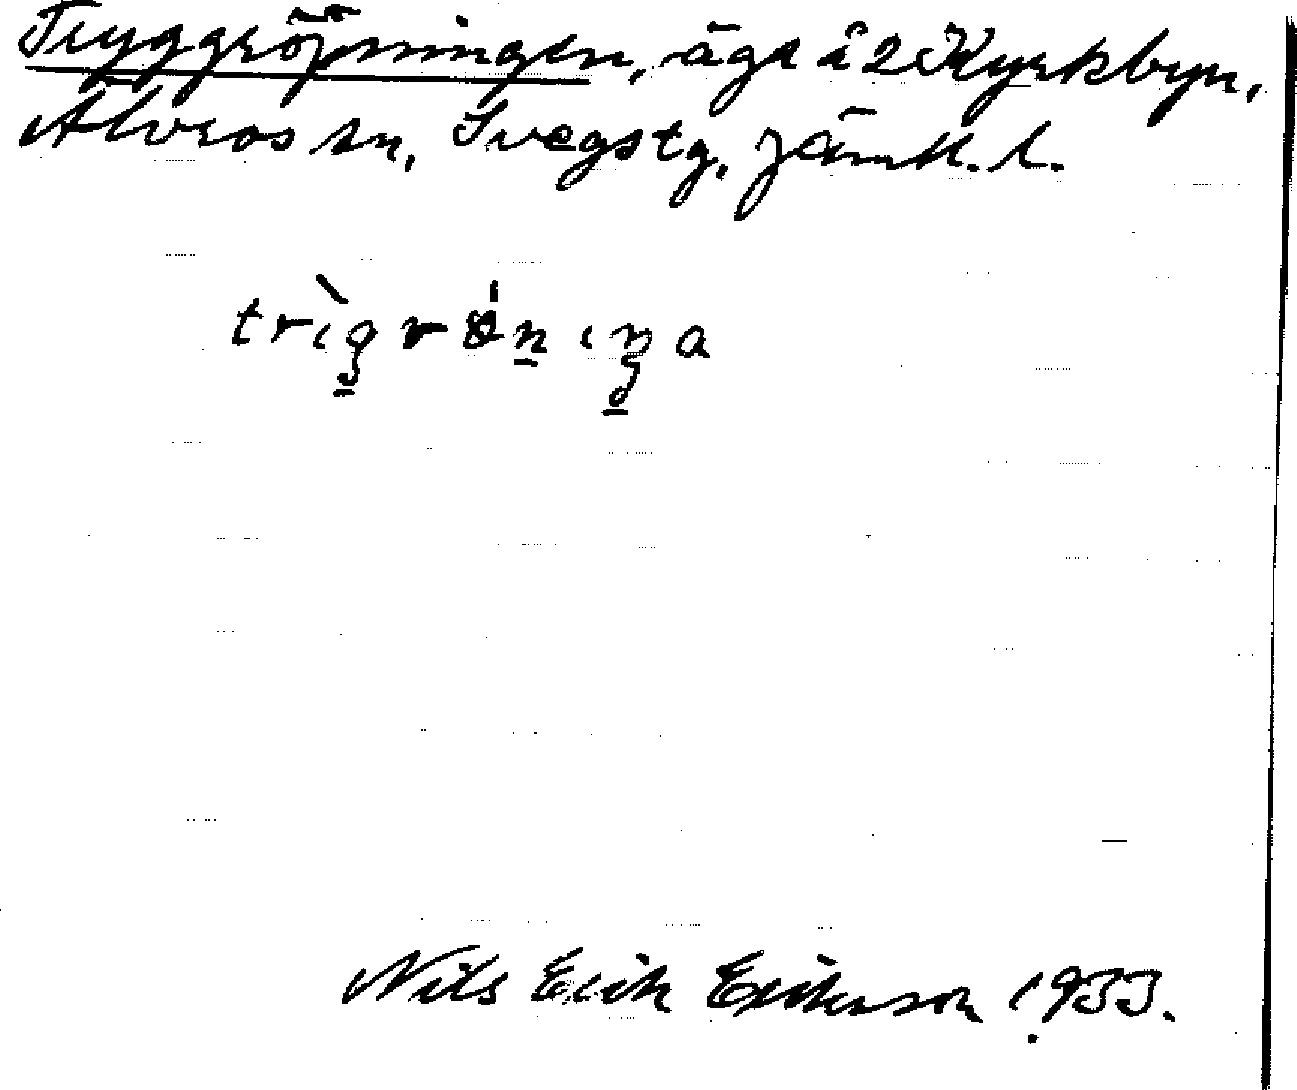 Tryggröningen, äga å 2 Kyrkbyn,
Älvros sn, Svegs tg, Jämtl. l.
trìgrǿn ıŋa
Nils Erik Eriksson 1933.